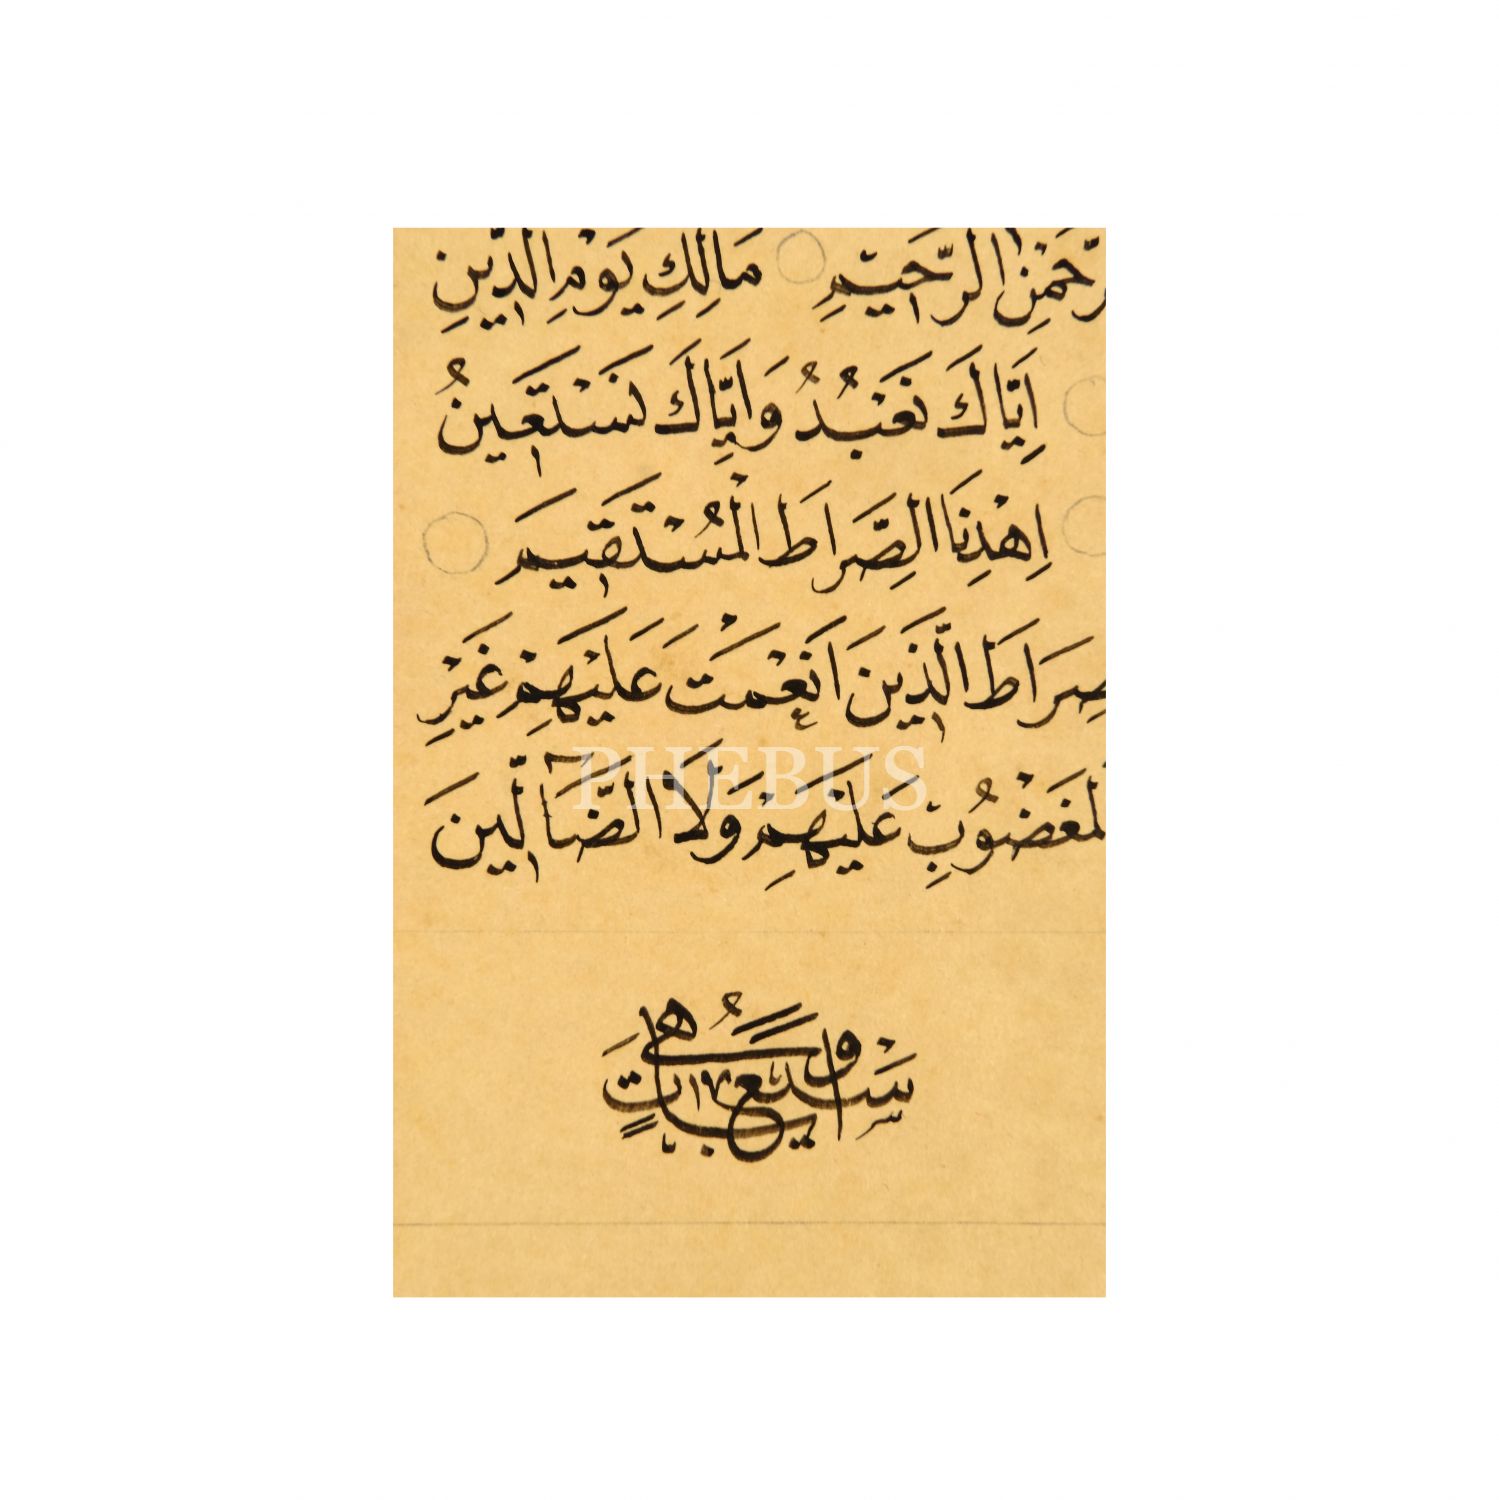 رَّحْمٰنِ الرَّحِيمِ مَالِكِ يَوْمِ الدِّينِ
اِيَّاكَ نَعْبُدُ وَاِيَّاكَ نَسْتَعِينُ
اِهْدِنَا الصِّرَاطَ الْمُسْتَقِيمَ
صِرَاطَ الَّذِينَ اَنْعَمْتَ عَلَيْهِمْ غَيْرِ
الْمَغْضُوبِ عَلَيْهِمْ وَلَا الضَّآلِّينَ
PHEBUS
وَهِيَ سَبْعُ اٰيَاتٍ